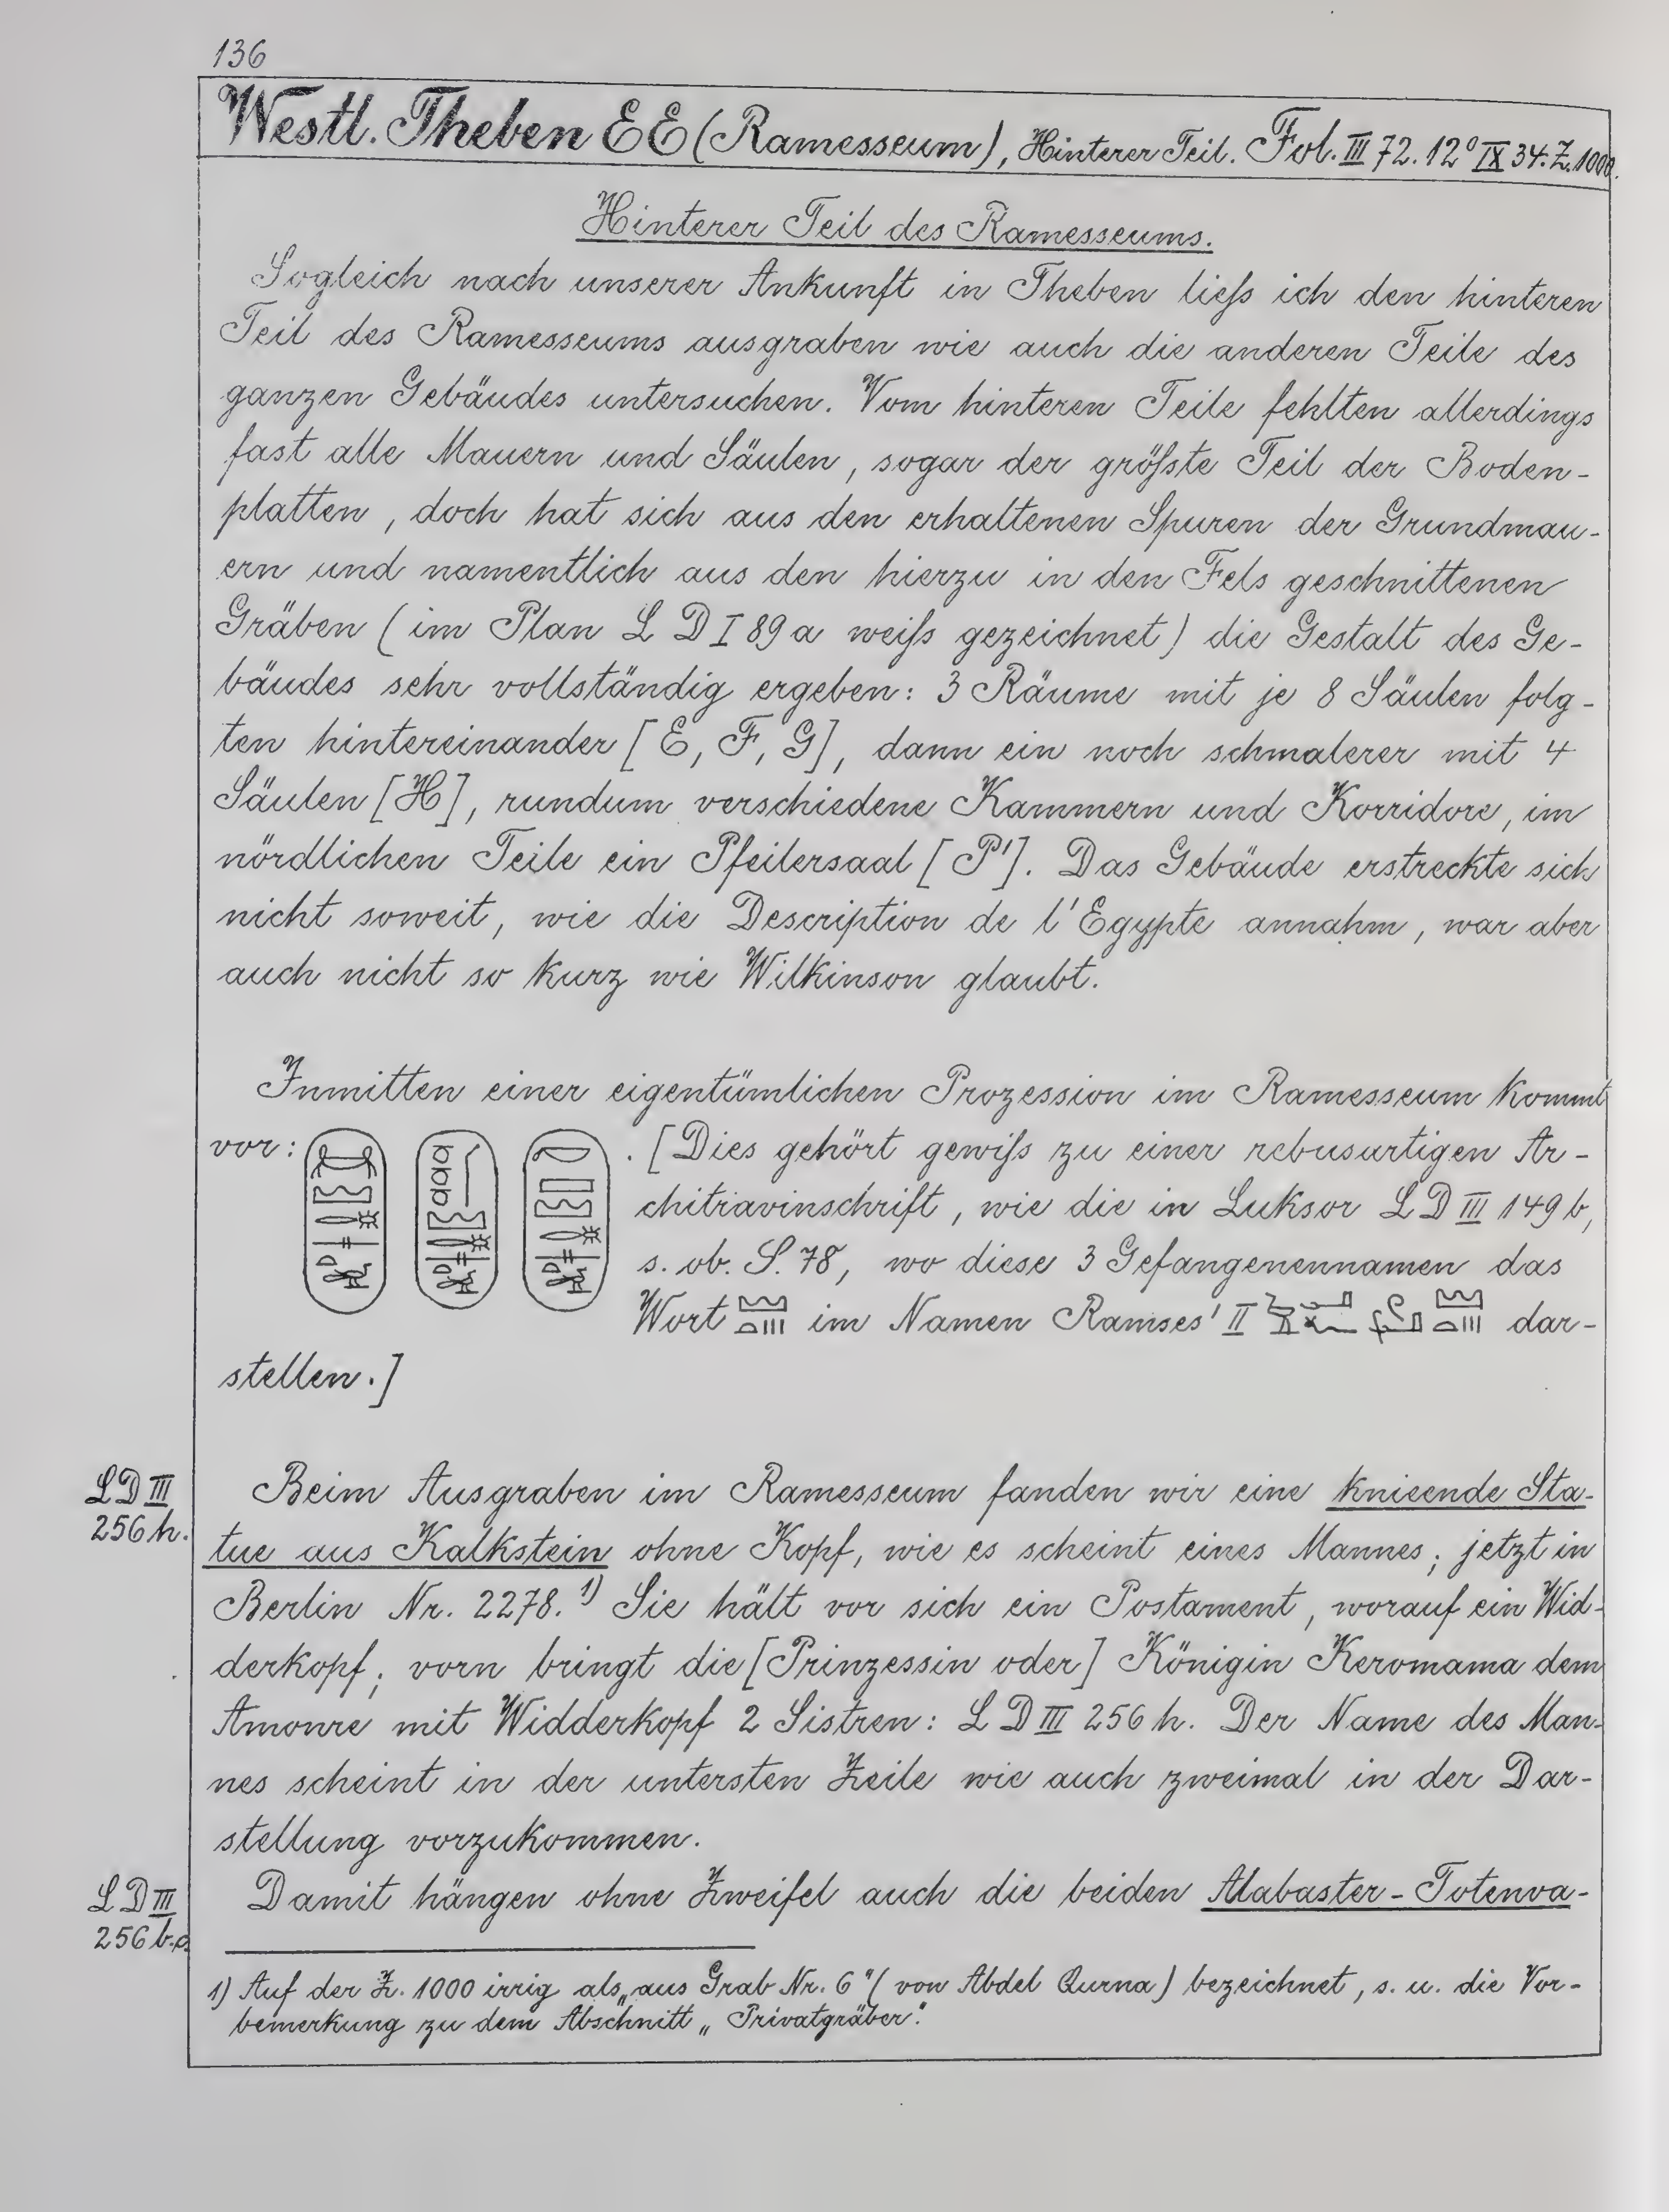 136
Westl. Theben EE (Ramesseum), Hinterer Teil. Fol. III 72. 12° IX 34. Z. 1000.
Hinterer Teil des Ramesseums.
Sogleich nach unserer Ankunft in Theben liefs ich den hinteren
Teil des Ramesseums ausgraben wie auch die anderen Teile des
ganzen Gebäudes untersuchen. Vom hinteren Teile fehlten allerdings
fast alle Mauern und Säulen, sogar der gröfste Teil der Boden-
platten, doch hat sich aus den erhaltenen Spuren der Grundmau-
ern und namentlich aus den hierzu in den Fels geschnittenen
Gräben (im Plan L D I 89 a weifs gezeichnet) die Gestalt des Ge-
bäudes sehr vollständig ergeben: 3 Räume mit je 8 Säulen folg-
ten hintereinander [E, F, G], dann ein noch schmalerer mit 4
Säulen [H], rundum verschiedene Kammern und Korridore, im
nördlichen Teile ein Pfeilersaal [P']. Das Gebäude erstreckte sich
nicht soweit, wie die Description de l'Egypte annahm, war aber
auch nicht so kurz wie Wilkinson glaubt.
Inmitten einer eigentümlichen Prozession im Ramesseum kommt
vor: . [Dies gehört gewifs zu einer rebusartigen Ar-
chitravinschrift, wie die in Luksor L D III 149 b,
s. ob. S. 78, wo diese 3 Gefangenennamen das
Wort im Namen Ramses' II dar-
stellen.]
LD III
256 h.
Beim Ausgraben im Ramesseum fanden wir eine knieende Sta-
tue aus Kalkstein ohne Kopf, wie es scheint eines Mannes; jetzt in
Berlin Nr. 2278. 1) Sie hält vor sich ein Postament, worauf ein Wid-
derkopf; vorn bringt die [Prinzessin oder] Königin Keromama dem
Amonre mit Widderkopf 2 Sistren: L D III 256 h. Der Name des Man-
nes scheint in der untersten Zeile wie auch zweimal in der Dar-
stellung vorzukommen.
LD III
256 b.c.
Damit hängen ohne Zweifel auch die beiden Alabaster-Totenva-
1) Auf der Z. 1000 irrig als „aus Grab Nr. 6" (von Abdel Qurna) bezeichnet, s. u. die Vor-
bemerkung zu dem Abschnitt „Privatgräber".